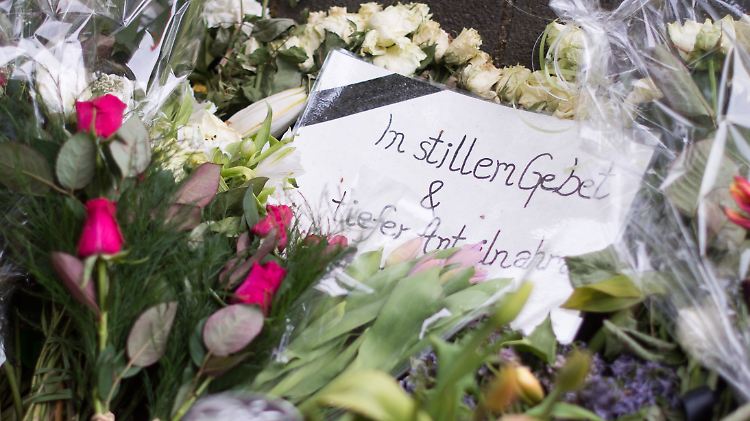 In stillem Gebet
&
tiefer Anteilnahme